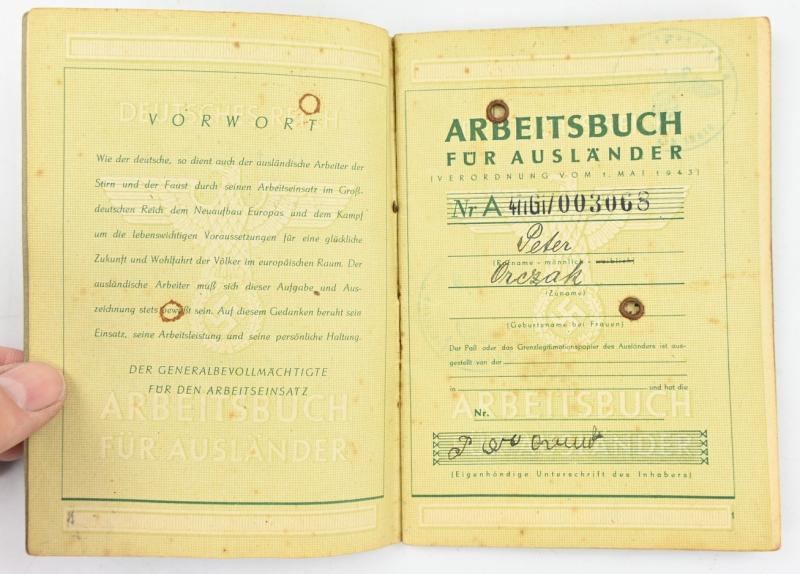 DEUTSCHES REICH
VORWORT
Wie der deutsche, so dient auch der ausländische Arbeiter der
Stirn und der Faust durch seinen Arbeitseinsatz im Groß-
deutschen Reich dem Neuaufbau Europas und dem Kampf
um die lebenswichtigen Voraussetzungen für eine glückliche
Zukunft und Wohlfahrt der Völker im europäischen Raum. Der
ausländische Arbeiter muß sich dieser Aufgabe und Aus-
zeichnung stets bewußt sein. Auf diesem Gedanken beruht sein
Einsatz, seine Arbeitsleistung und seine persönliche Haltung.
DER GENERALBEVOLLMÄCHTIGTE
FÜR DEN ARBEITSEINSATZ
ARBEITSBUCH
FÜR AUSLÄNDER
ARBEITSBUCH
FÜR AUSLÄNDER
(VERORDNUNG VOM 1. MAI 1943)
Nr A 003068
Peter
(Rufname - männlich - weiblich)
Orczak
(Zuname)
(Geburtsname bei Frauen)
Der Paß oder das Grenzlegitimationspapier des Ausländers ist aus-
gestellt von der
in und hat die
Nr.
ARBEITSBUCH
(Eigenhändige Unterschrift des Inhabers)
1